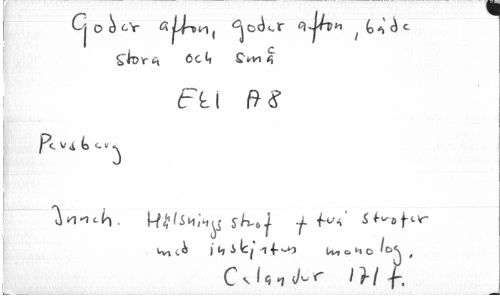 Goder afton, goder afton, både
stora och små
EEI A8
Persberg
Inneh. Hälsningsstrof + två strofer
med inskjuten monolog.
Celander 171 f.